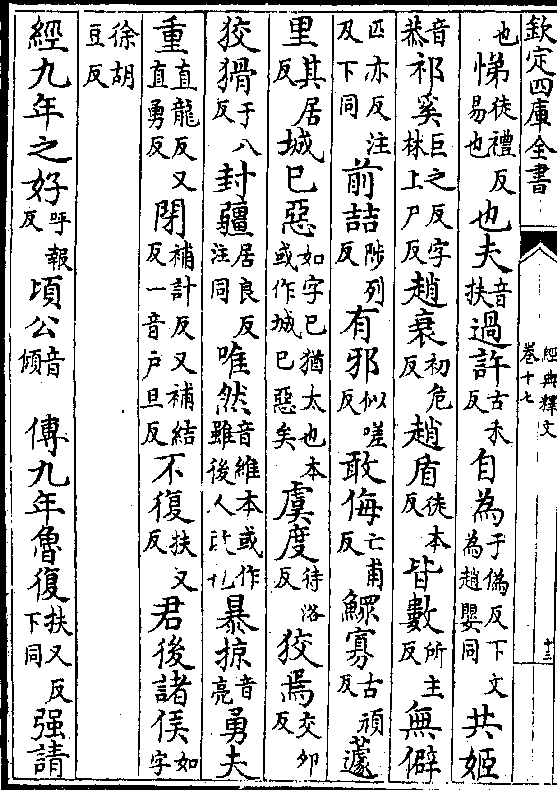 欽定四庫全書 經典釋文 卷十七 十三
也悌徒禮反易也也夫音扶過許古禾反自為于偽反下文為趙嬰同共姬
音恭祁奚巨之反字林上尸反趙衰初危反趙盾徒本反皆數所主反無僻
匹亦反注及下同前詰陟列反有邪似嗟反敢侮亡甫反鰥寡古頑反蘧
里其居反城已惡如字已猶太也本或作城已惡矣虞度待洛反狡焉交卯反
狡猾于八反封疆居良反注同唯然音維本或作雖後人改也暴掠音亮勇夫
重直龍反又直勇反閉補計反又補結反一音戶旦反不復扶又反君後諸侯如字
徐胡豆反
經九年之好呼報反頃公音傾 傳九年魯復扶又反下同强請